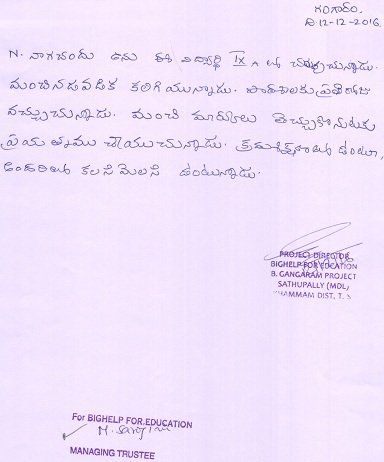 గంగారం.
ది.12-12-2016.
N. నాగచందు అను ఈ విద్యార్థి IX గ లో చదువుచున్నాడు.
మంచినడవడిక కలిగియున్నాడు. పాఠశాలకు ప్రతిరోజు
వచ్చుచున్నాడు. మంచి మార్కులు తెచ్చుకొనుటకు
ప్రయత్నము చేయుచున్నాడు. క్రమశిక్షణలో ఉంటూ,
అందరితో కలసిమెలసి ఉంటున్నాడు.
PROJECT DIRECTOR
BIGHELP FOR EDCATION
B. GANGARAM PROJECT
SATHUPALLY (MDL)
KHAMMAM DIST, T. S
For BIGHELP FOR EDUCATION
MANAGING TRUSTEE